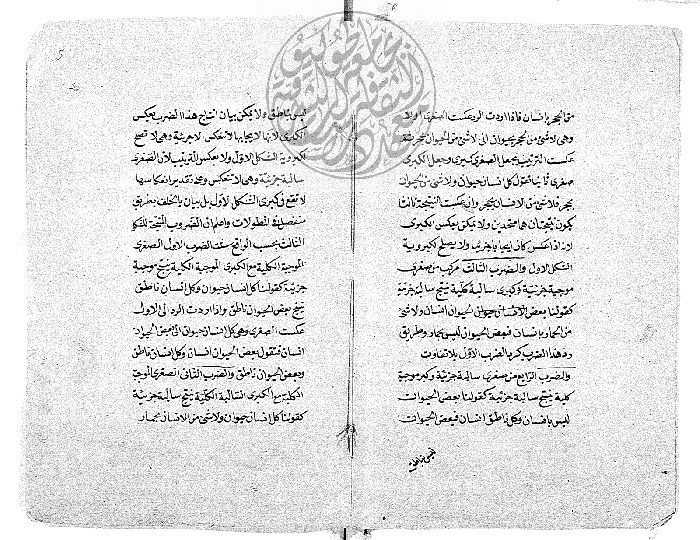 من الحجر بانسان فاذا اردت الرد عكست الصغرى
وهى لا شئ من الحجر بحيوان الى لا شئ من الحيوان بحجر ثم
عكست الترتيب بجعل الصغرى كبرى وجعل الكبرى
صغرى ثانيا فتقول كل انسان حيوان ولا شئ من الحيوان
بحجر فلا شئ من الانسان بحجر وان عكست النتيجة
النتيجتان متحدتين ولا يمكن بعكس الكبرى
كان ايجابا جزئيا ولا يصلح لكبروية
الشكل الاول والضرب الثالث مركب من صغرى
موجبة جزئية وكبرى سالبة كلية ينتج سالبة جزئية
كقولنا بعض الانسان حيوان ولا شئ
من الحمار بانسان فبعض الحيوان ليس بحمار وطريق
رد هذا الضرب كرد الضرب الاول بلا تفاوت
والضرب الرابع من صغرى سالبة جزئية وكبرى موجبة
كلية ينتج سالبة جزئية كقولنا بعض الحيوان
ليس بانسان وكل ناطق انسان فبعض الحيوان
ليس بناطق
5
ليس بناطق ولا يمكن بيان انتاج هذا الضرب بعكس
الكبرى لانها لايجابها لا تنعكس الا جزئية وهى لا تصلح
لكبروية الشكل الاول ولا بعكس الترتيب لان الصغرى
سالبة جزئية وهى لا تنعكس وعلى تقدير انعكاسها
لا تقع فى كبرى الشكل الاول بل بيان بالخلف بطريق
منفصل فى المطولات واعلم ان الضروب المنتجة للشكل
الثالث بحسب الواقع ستة الضرب الاول الصغرى
الموجبة الكلية مع الكبرى الموجبة الكلية ينتج موجبة
جزئية كقولنا كل انسان حيوان وكل انسان ناطق
ينتج بعض الحيوان ناطق واذا اردت الرد الى الاول
عكست الصغرى وهى كل انسان حيوان الى بعض الحيوان
انسان فتقول بعض الحيوان انسان وكل انسان ناطق
وبعض الحيوان ناطق والضرب الثانى الصغرى الموجبة
الكلية مع الكبرى السالبة الكلية ينتج سالبة جزئية
كقولنا كل انسان حيوان ولا شئ من الانسان بحمار